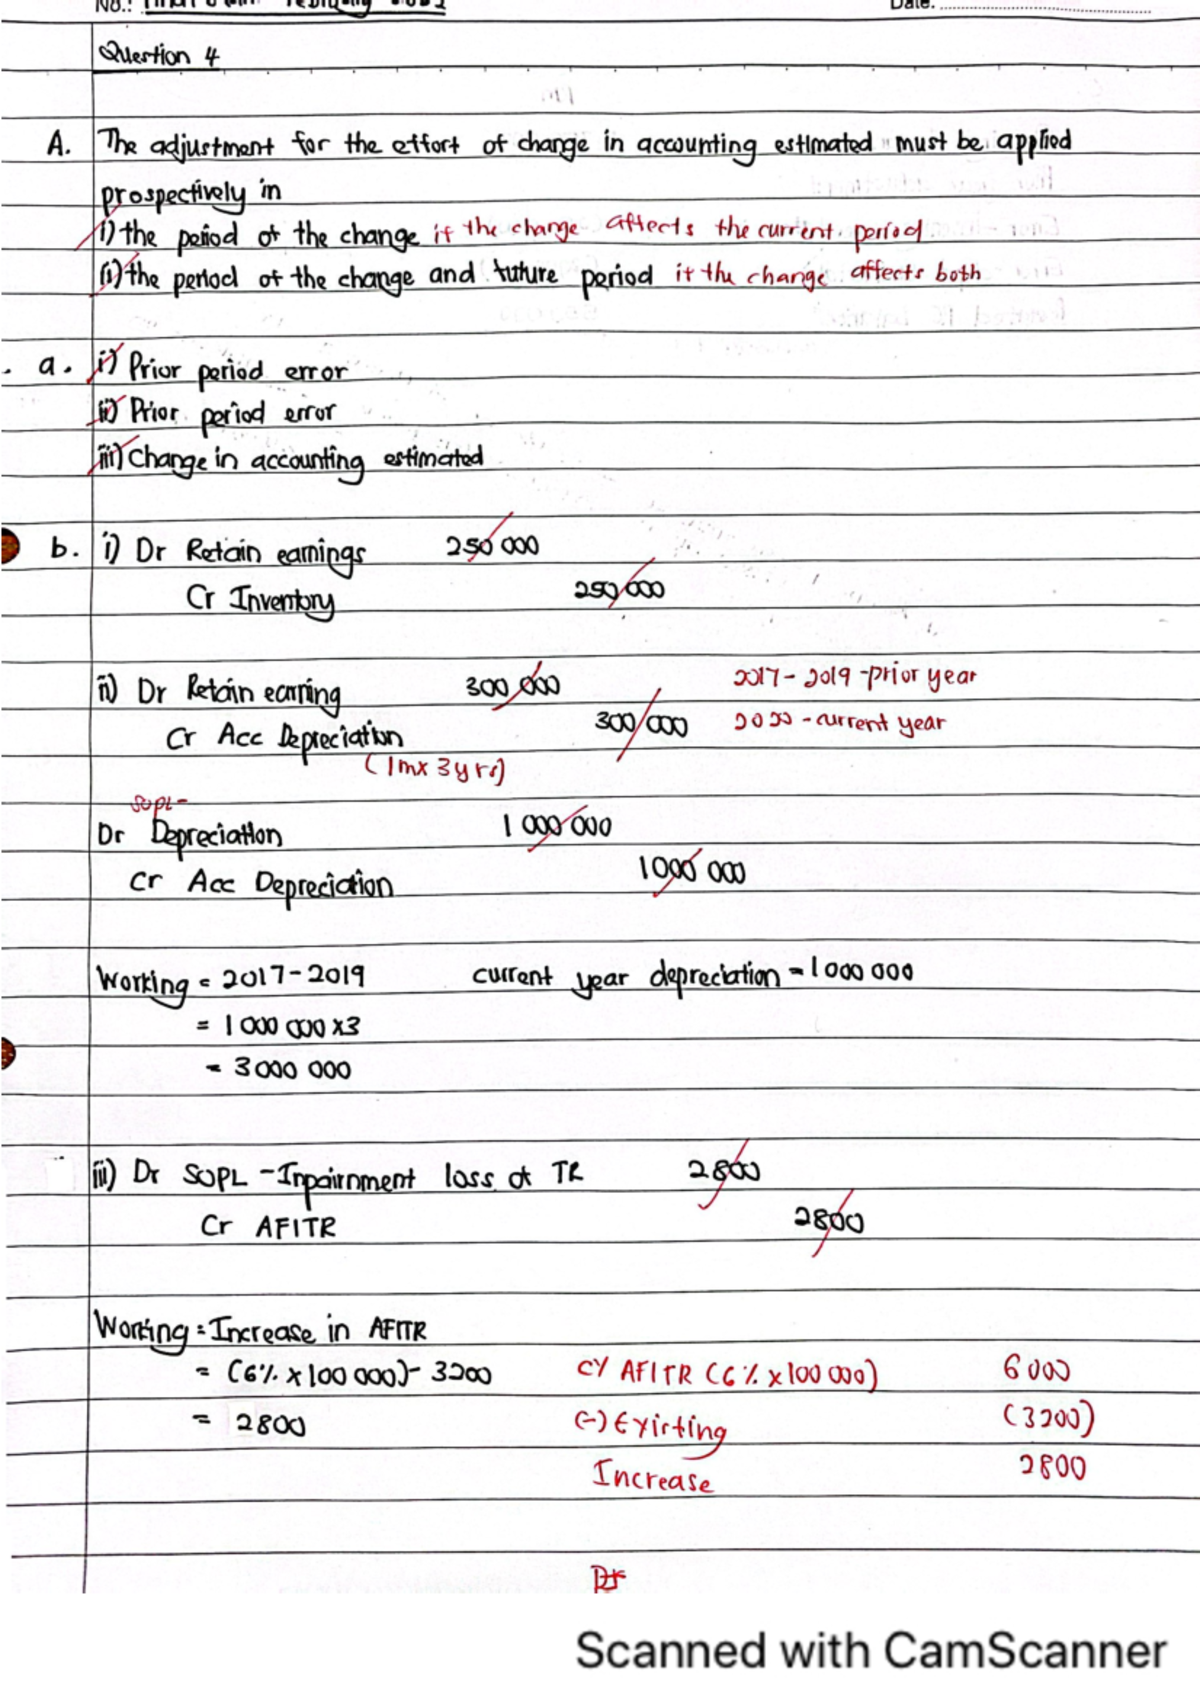 No.:
Date:
Question 4
A. The adjustment for the effort of change in accounting estimated must be applied
prospectively in
i) the period of the change if the change affects the current period
ii) the period of the change and future period if the change affects both
a. i) Prior period error
ii) Prior period error
iii) Change in accounting estimated
b. i) Dr Retain earnings 250 000
Cr Inventory 250 000
ii) Dr Retain earning 300 000 2017 - 2019 - prior year
Cr Acc Depreciation 300 000 2020 - current year
(1m x 3 yrs)
SOPL -
Dr Depreciation 1 000 000
Cr Acc Depreciation 1000 000
Working = 2017 - 2019 current year depreciation = 1 000 000
= 1 000 000 x3
= 3 000 000
iii) Dr SOPL - Inpairnment loss of TR 2800
Cr AFITR 2800
Working = Increase in AFITR
= (6% x 100 000) - 3200 CY AFITR (6% x 100 000) 6 000
= 2800 (-) Existing (3200)
Increase 2800
Scanned with CamScanner